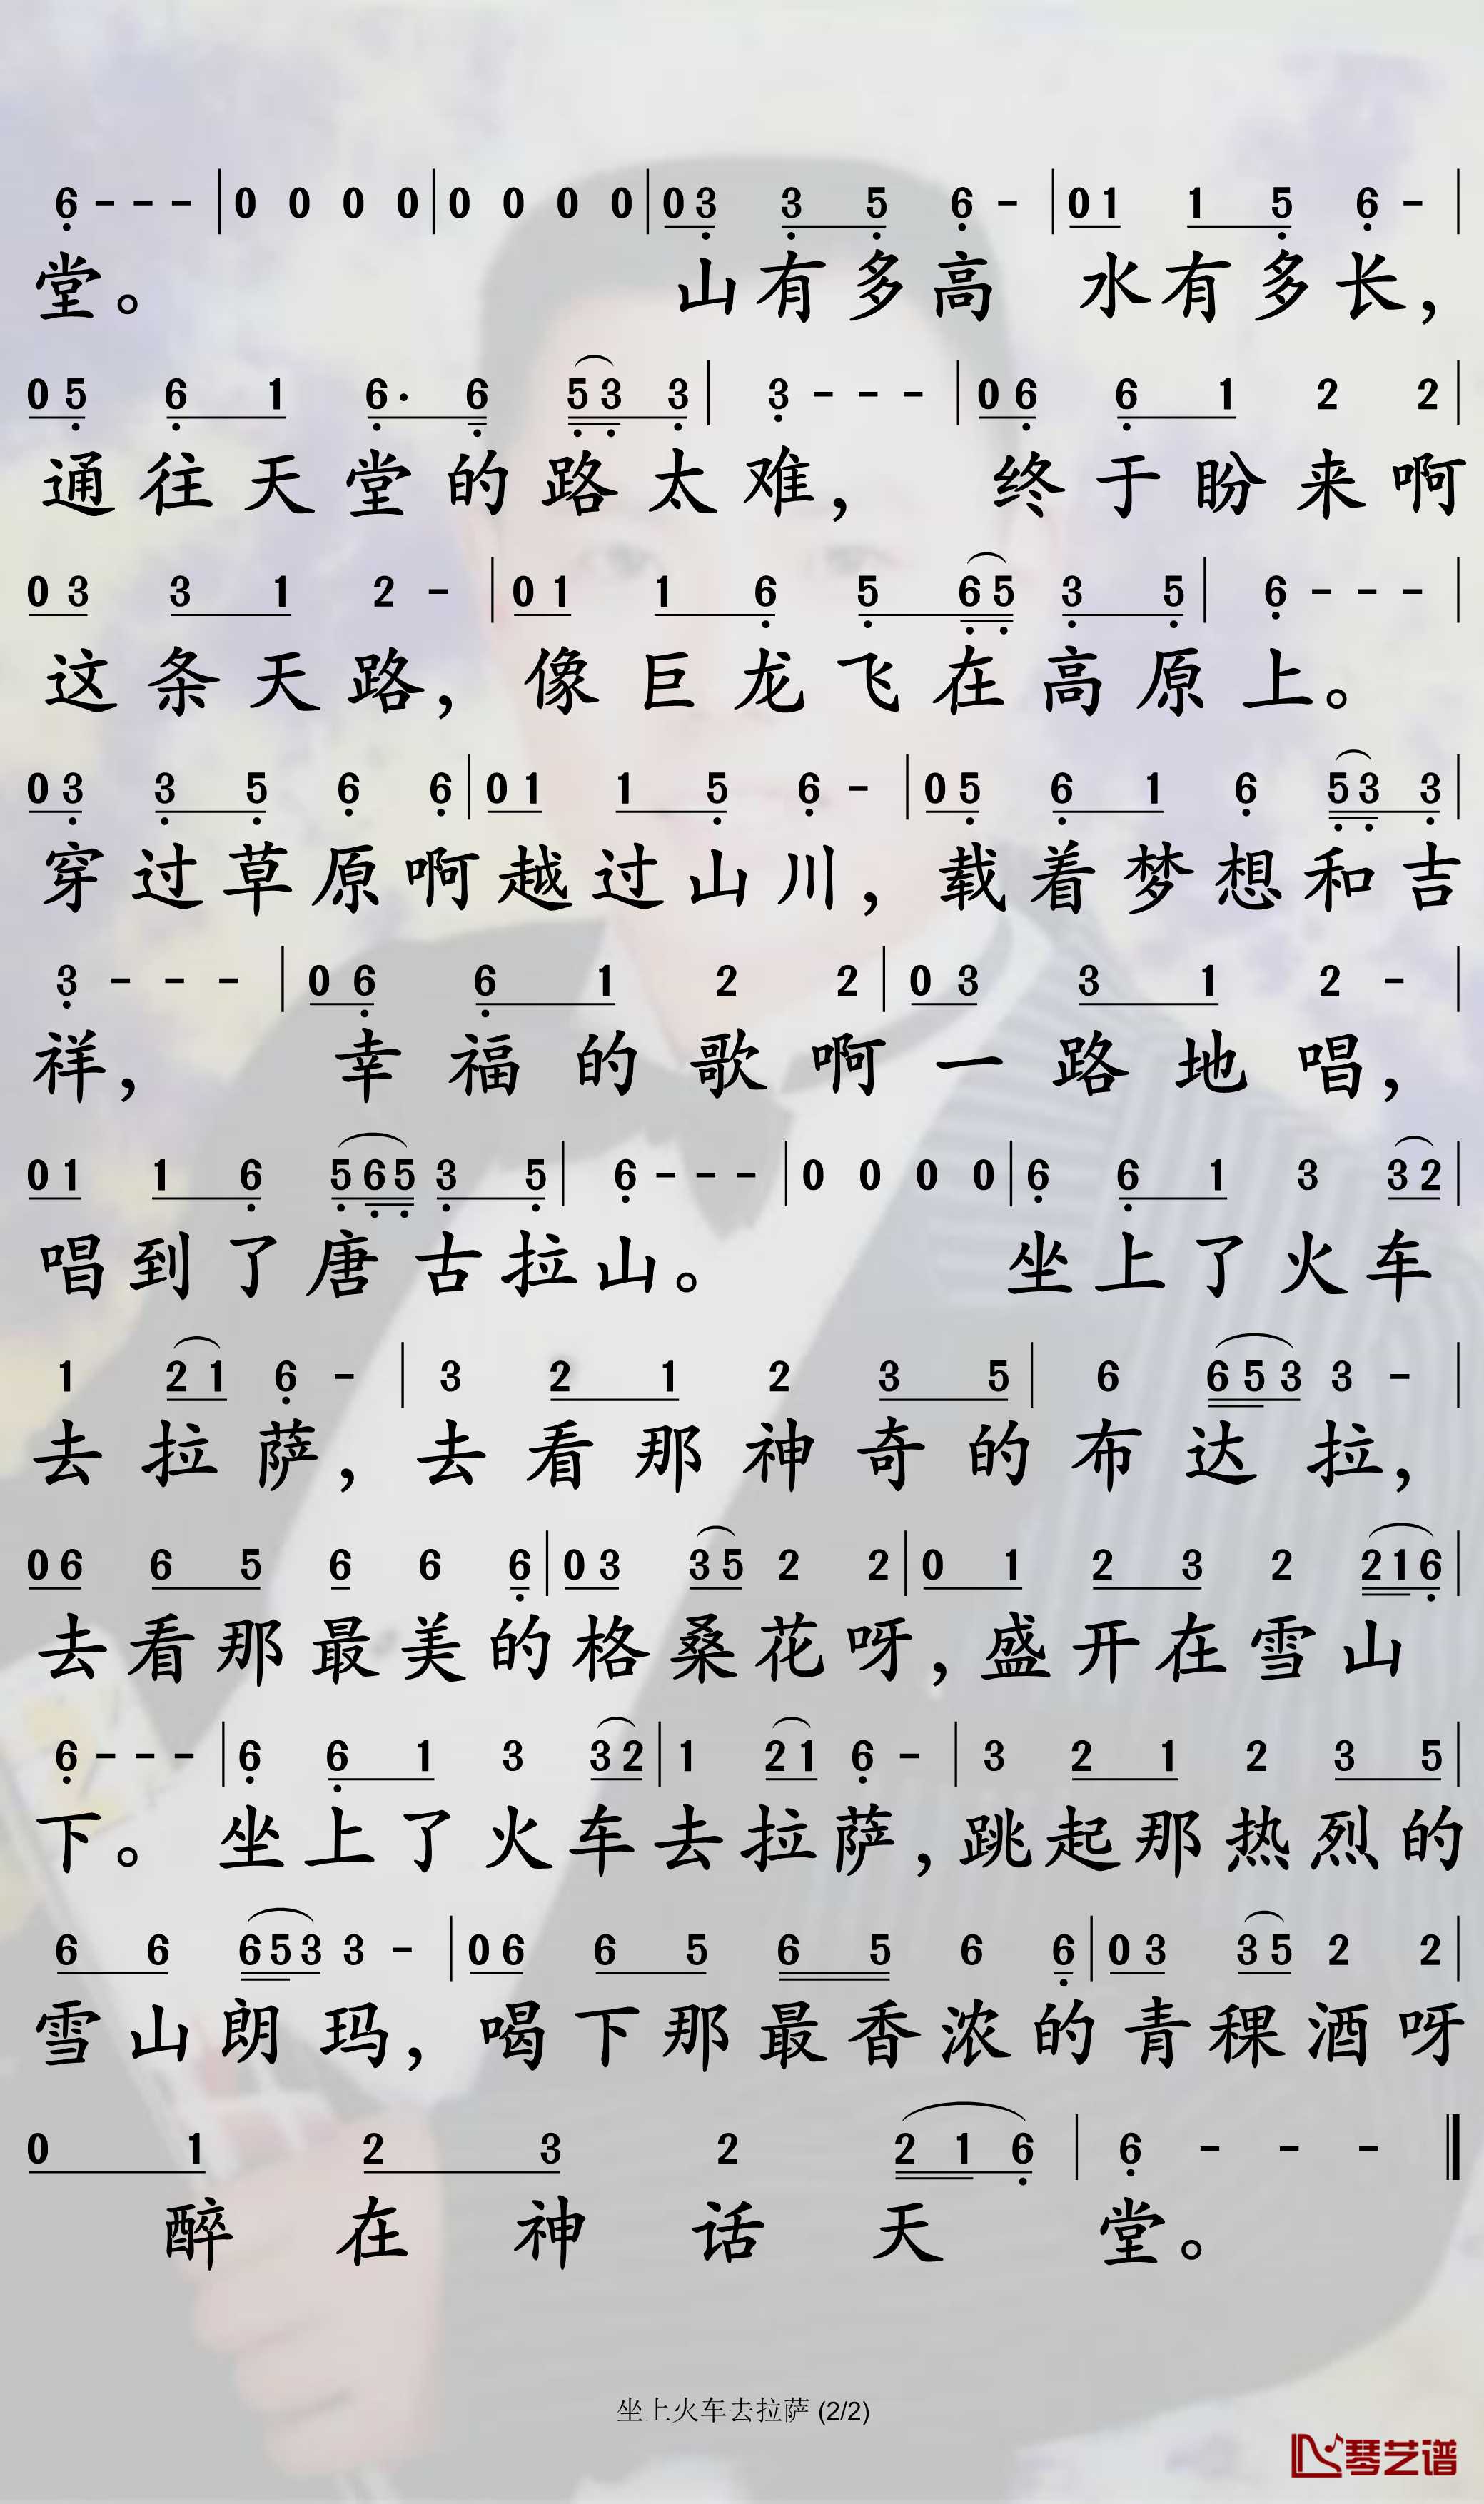 6 - - - | 0 0 0 0 | 0 0 0 0 | 0 3 3 5 6 - | 0 1 1 5 6 - |
堂。 山有多高 水有多长，
0 5 6 1 6· 6 5 3 3 | 3 - - - | 0 6 6 1 2 2 |
通往天堂的路太难， 终于盼来啊
0 3 3 1 2 - | 0 1 1 6 5 6 5 3 5 | 6 - - - |
这条天路，像巨龙飞在高原上。
0 3 3 5 6 6 | 0 1 1 5 6 - | 0 5 6 1 6 5 3 3 |
穿过草原啊越过山川，载着梦想和吉
3 - - - | 0 6 6 1 2 2 | 0 3 3 1 2 - |
祥， 幸福的歌啊一路地唱，
0 1 1 6 5 6 5 3 5 | 6 - - - | 0 0 0 0 | 6 6 1 3 3 2 |
唱到了唐古拉山。 坐上了火车
1 2 1 6 - | 3 2 1 2 3 5 | 6 6 5 3 3 - |
去拉萨，去看那神奇的布达拉，
0 6 6 5 6 6 6 | 0 3 3 5 2 2 | 0 1 2 3 2 2 1 6 |
去看那最美的格桑花呀，盛开在雪山
6 - - - | 6 6 1 3 3 2 | 1 2 1 6 - | 3 2 1 2 3 5 |
下。坐上了火车去拉萨，跳起那热烈的
6 6 6 5 3 3 - | 0 6 6 5 6 5 6 6 | 0 3 3 5 2 2 |
雪山朗玛，喝下那最香浓的青稞酒呀
0 1 2 3 2 2 1 6 | 6 - - - ‖
醉在神话天堂。
坐上火车去拉萨 (2/2)
琴艺谱